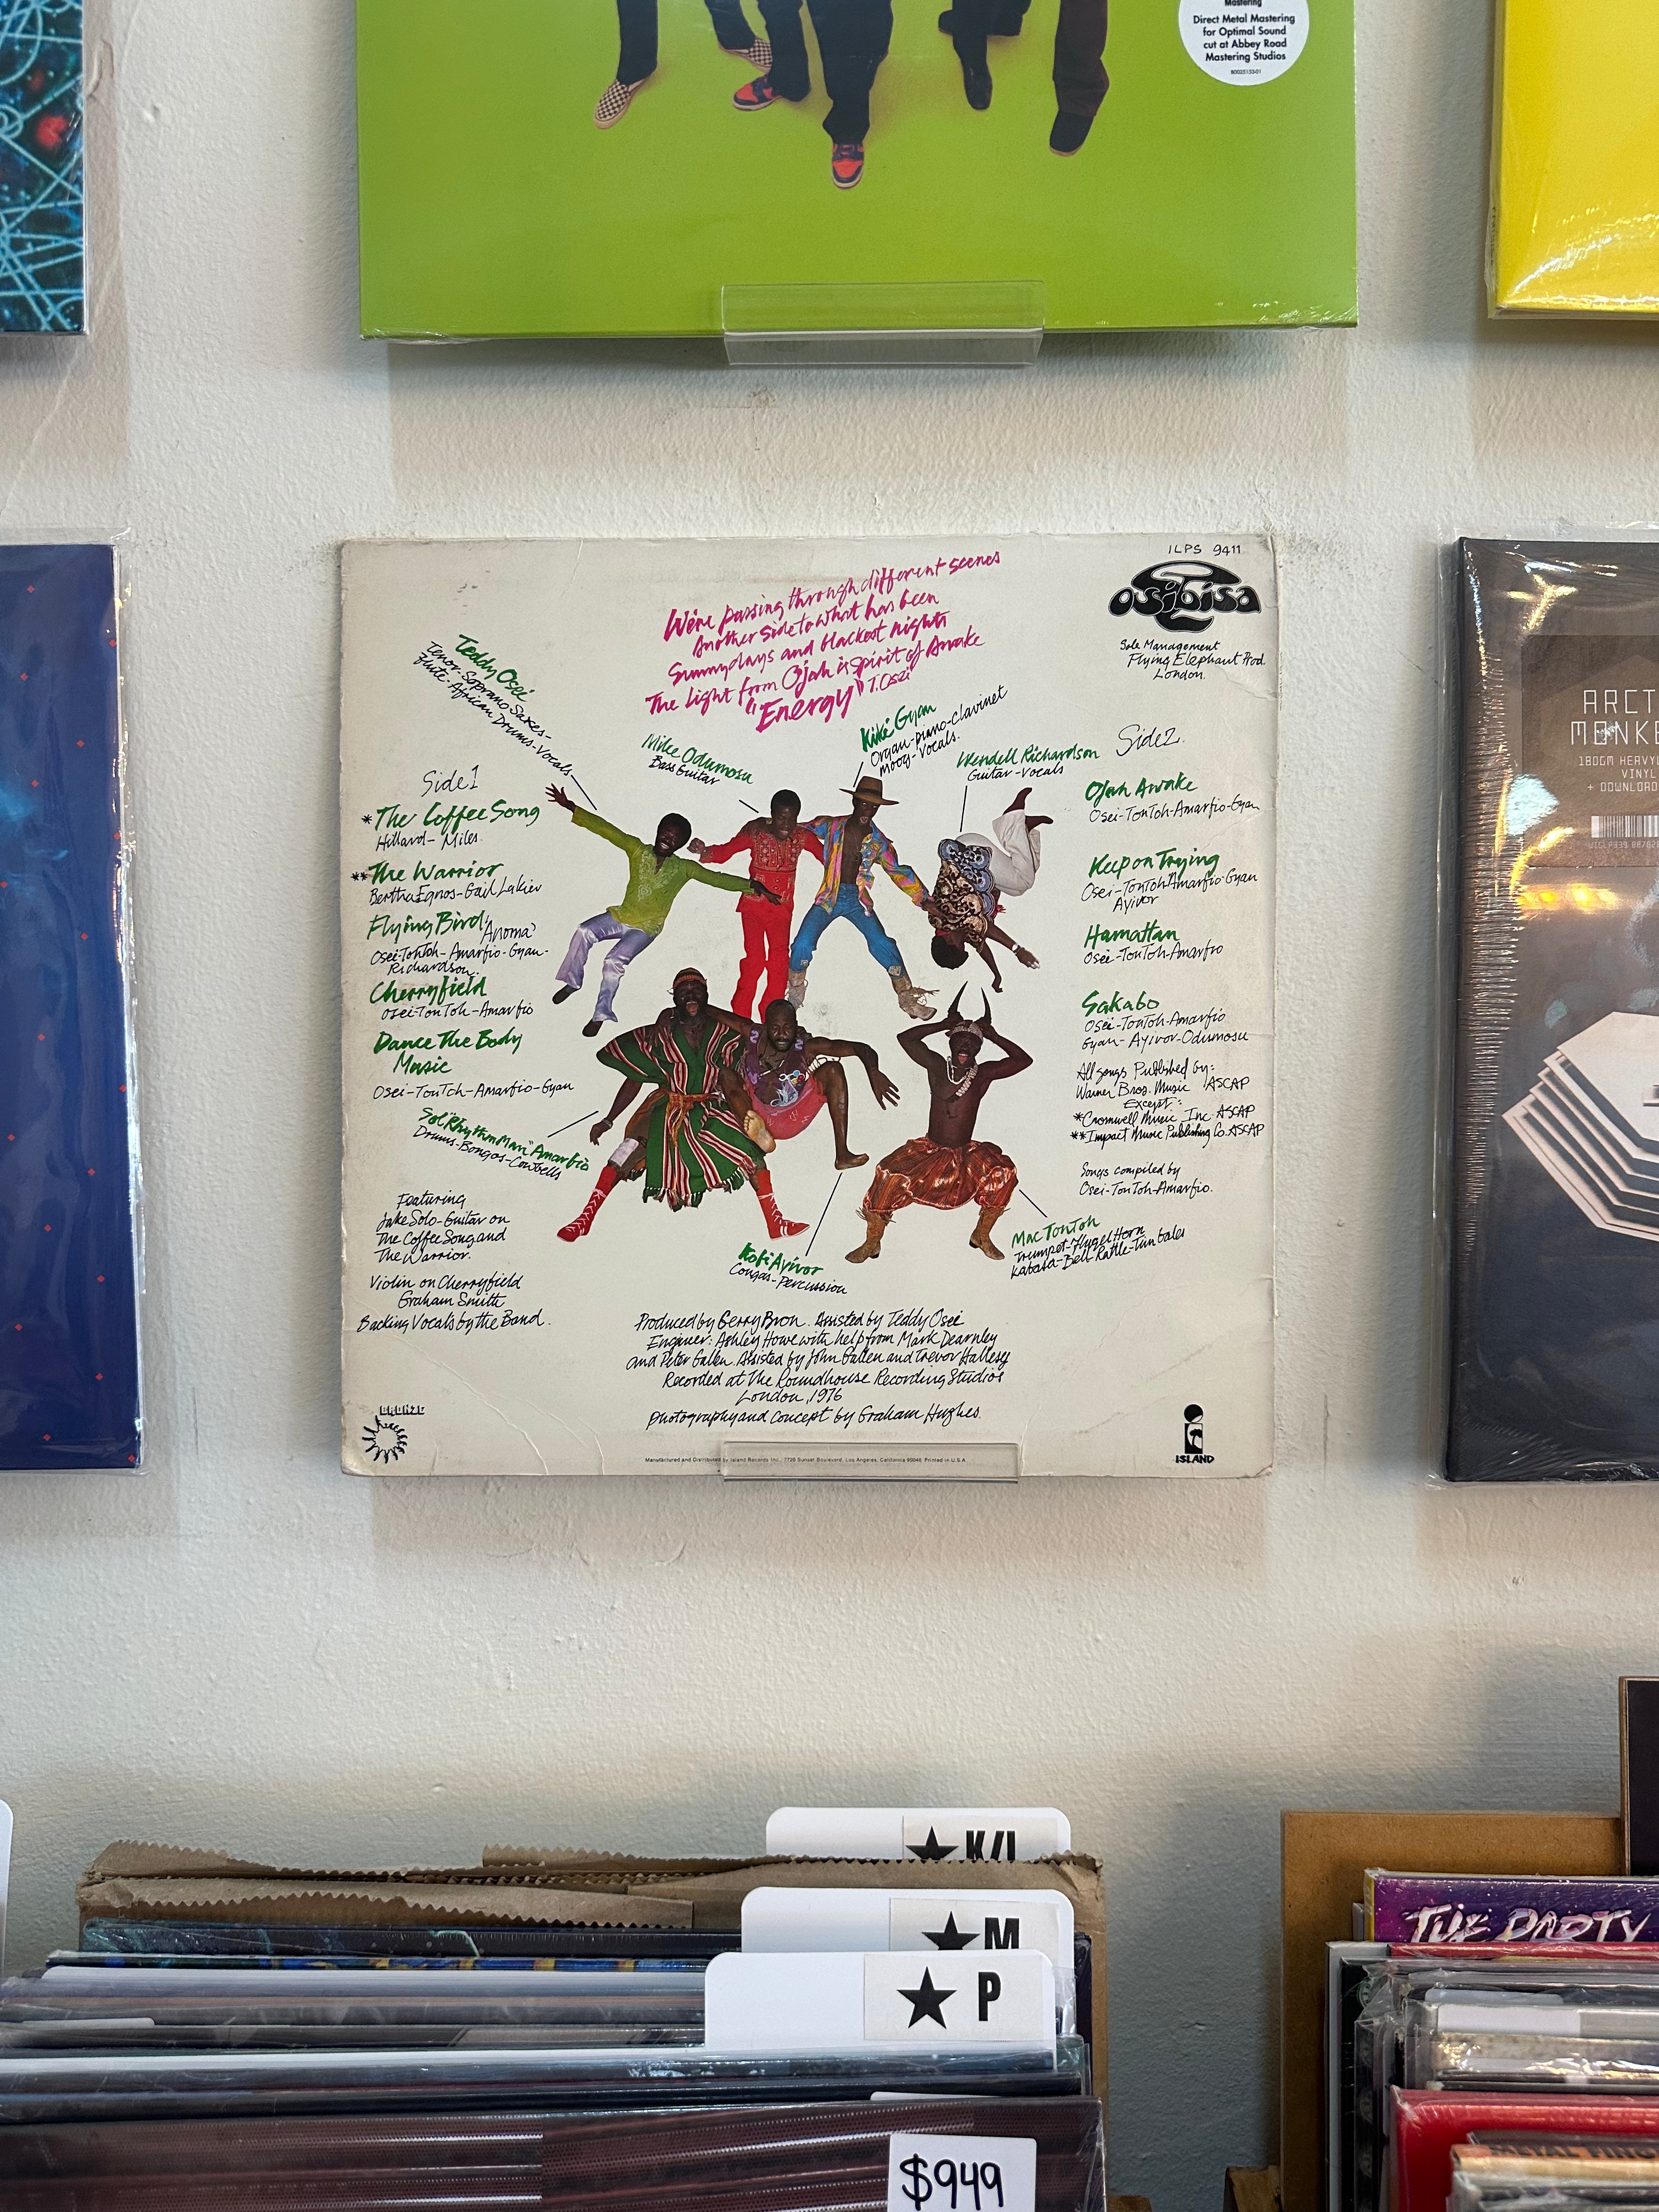 Mastering
Direct Metal Mastering
for Optimal Sound
cut at Abbey Road
Mastering Studios
ILPS 9411
OSIBISA
Sole Management
Flying Elephant Prod.
London.
We're passing through different scenes
Another side to what has been
Sunny days and blackest nights
The Light from Ojah is spirit of Awake
"Energy" T. Osei
Teddy Osei
Tenor-Soprano Saxes-
Flute-African Drums-Vocals-
Mike Odumosu
Bass Guitar
Kiki Gyan
Organ-piano-Clavinet
Moog-Vocals.
Wendell Richardson
Guitar-Vocals
Side 1
*The Coffee Song
Hillard-Miles.
**The Warrior
Bertha Egnos-Gail Lakier
Flying Bird 'Anoma'
Osei-TonToh-Amarfio-Gyan-
Richardson.
Cherryfield
Osei-TonToh-Amarfio
Dance The Body
Music
Osei-TonToh-Amarfio-Gyan
Sol "Rhythm Man" Amarfio
Drums-Bongos-Cowbells
Featuring
Jake Solo-Guitar on
The Coffee Song and
The Warrior.
Violin on Cherryfield
Graham Smith
Backing Vocals by the Band.
Side 2.
Ojah Awake
Osei-TonToh-Amarfio-Gyan
Keep on Trying
Osei-TonToh-Amarfio-Gyan
Ayivor
Hamattan
Osei-TonToh-Amarfio
Sakabo
Osei-TonToh-Amarfio
Gyan-Ayivor-Odumosu
All songs Published by:
Warner Bros. Music ASCAP
Except:
*Cromwell Music Inc. ASCAP
**Impact Music Publishing Co. ASCAP
Songs compiled by
Osei-TonToh-Amarfio.
Kofi Ayivor
Congas-Percussion
Mac TonToh
Trumpet-Flugel Horn
Kabasa-Bell Rattle-Timbales
Produced by Gerry Bron. Assisted by Teddy Osei
Engineer: Ashley Howe with help from Mark Dearnley
and Peter Gallen. Assisted by John Gallen and Trevor Hallesy
Recorded at The Roundhouse Recording Studios
London, 1976
Photography and concept by Graham Hughes.
BRONZE
ISLAND
Manufactured and Distributed by Island Records Inc., 7720 Sunset Boulevard, Los Angeles, California 90046 Printed in U.S.A.
ARCT
MONKE
180GM HEAVY
VINYL
+ DOWNLOAD
★ K/L
★ M
★ P
$949
THE PARTY